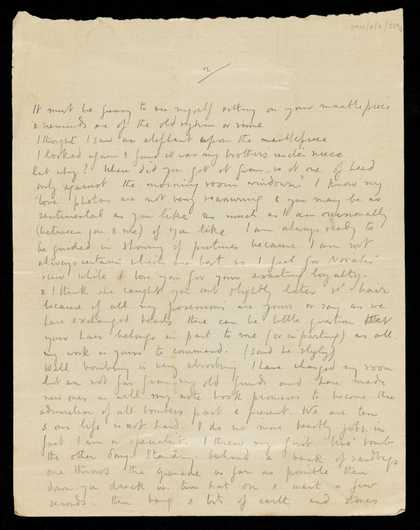 2/
It must be funny to see myself sitting on your mantlepiece
& reminds me of the old rhyme
I thought I saw an elephant upon the mantlepiece
I looked again & found it was my brothers uncles niece
but why? Where did you get it from. is it one of head
only against the morning room windows? I know my
love photos are not very reassuring & you may be as
sentimental as you like as much as I am occasionally
(between you & me) if you like I am always ready to
be guided in showing of pictures because I am not
always certain which are best as I feel for
view while I love you for your loyalty.
& I think she caught you out slightly later is hair
because if all my possessions are yours or say as we
have exchanged heads there can be little question that
your hair belongs in part to me (or in parting) as all
my work is yours to command. (said he slyly)
Well bombing is very absorbing I have changed my room
but am not far from my old friends and have made
new ones as well my note book promises to become the
admiration of all bombers past & present. We are ten
& our life is not hard. I do no more beastly jobs in
fact I am a specialist. I threw my first 'live' bomb
the other day. Standing behind a bank of sandbags
one throws the grenade as far as possible then
down you duck in tin hat on & wait a few
seconds. then bang & bits of earth and stones